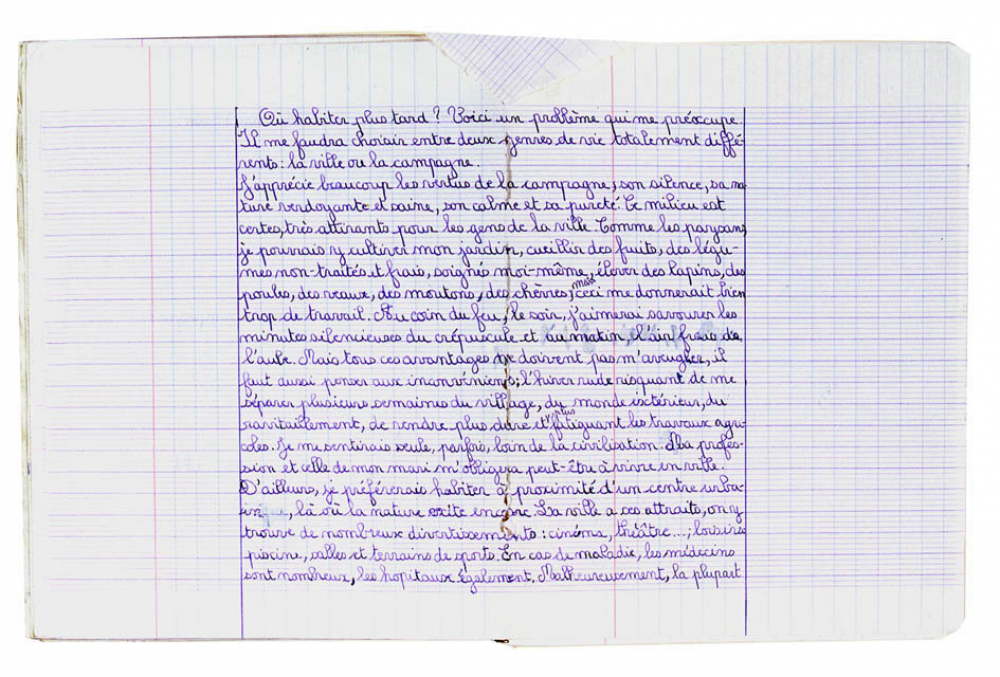 Où habiter plus tard ? Voici un problème qui me préoccupe.
Il me faudra choisir entre deux genres de vie totalement diffé-
rents : la ville ou la campagne.
J'apprécie beaucoup les vertus de la campagne, son silence, sa na-
ture verdoyante et saine, son calme et sa pureté. Ce milieu est
certes, très attirants pour les gens de la ville. Comme les paysans
je pourrais y cultiver mon jardin, cueillir des fruits, des légu-
mes non-traités et frais, soignés moi-même, élever des lapins, des
poules, des veaux, des moutons, des chèvres, mais ceci me donnerait bien
trop de travail. Au coin du feu, le soir, j'aimerai savourer les
minutes silencieuses du crépuscule et au matin, l'air frais de
l'aube. Mais tous ces avantages ne doivent pas m'aveugler, il
faut aussi penser aux inconvénients ; l'hiver rude risquant de me
séparer plusieurs semaines du village, du monde extérieur, du
ravitaillement, de rendre plus dure et plus fatiguant les travaux agri-
coles. Je me sentirais seule, parfois, loin de la civilisation. Ma profes-
sion et celle de mon mari m'obligera peut-être à vivre en ville.
D'ailleurs, je préférerais habiter à proximité d'un centre urba-
, là où la nature exite encore. La ville a ses attraits, on y
trouve de nombreux divertissements : cinéma, théâtre..., loisirs
piscine, salles et terrains de sports. En cas de maladie, les médecins
sont nombreux, les hopitaux également. Malheureusement, la plupart